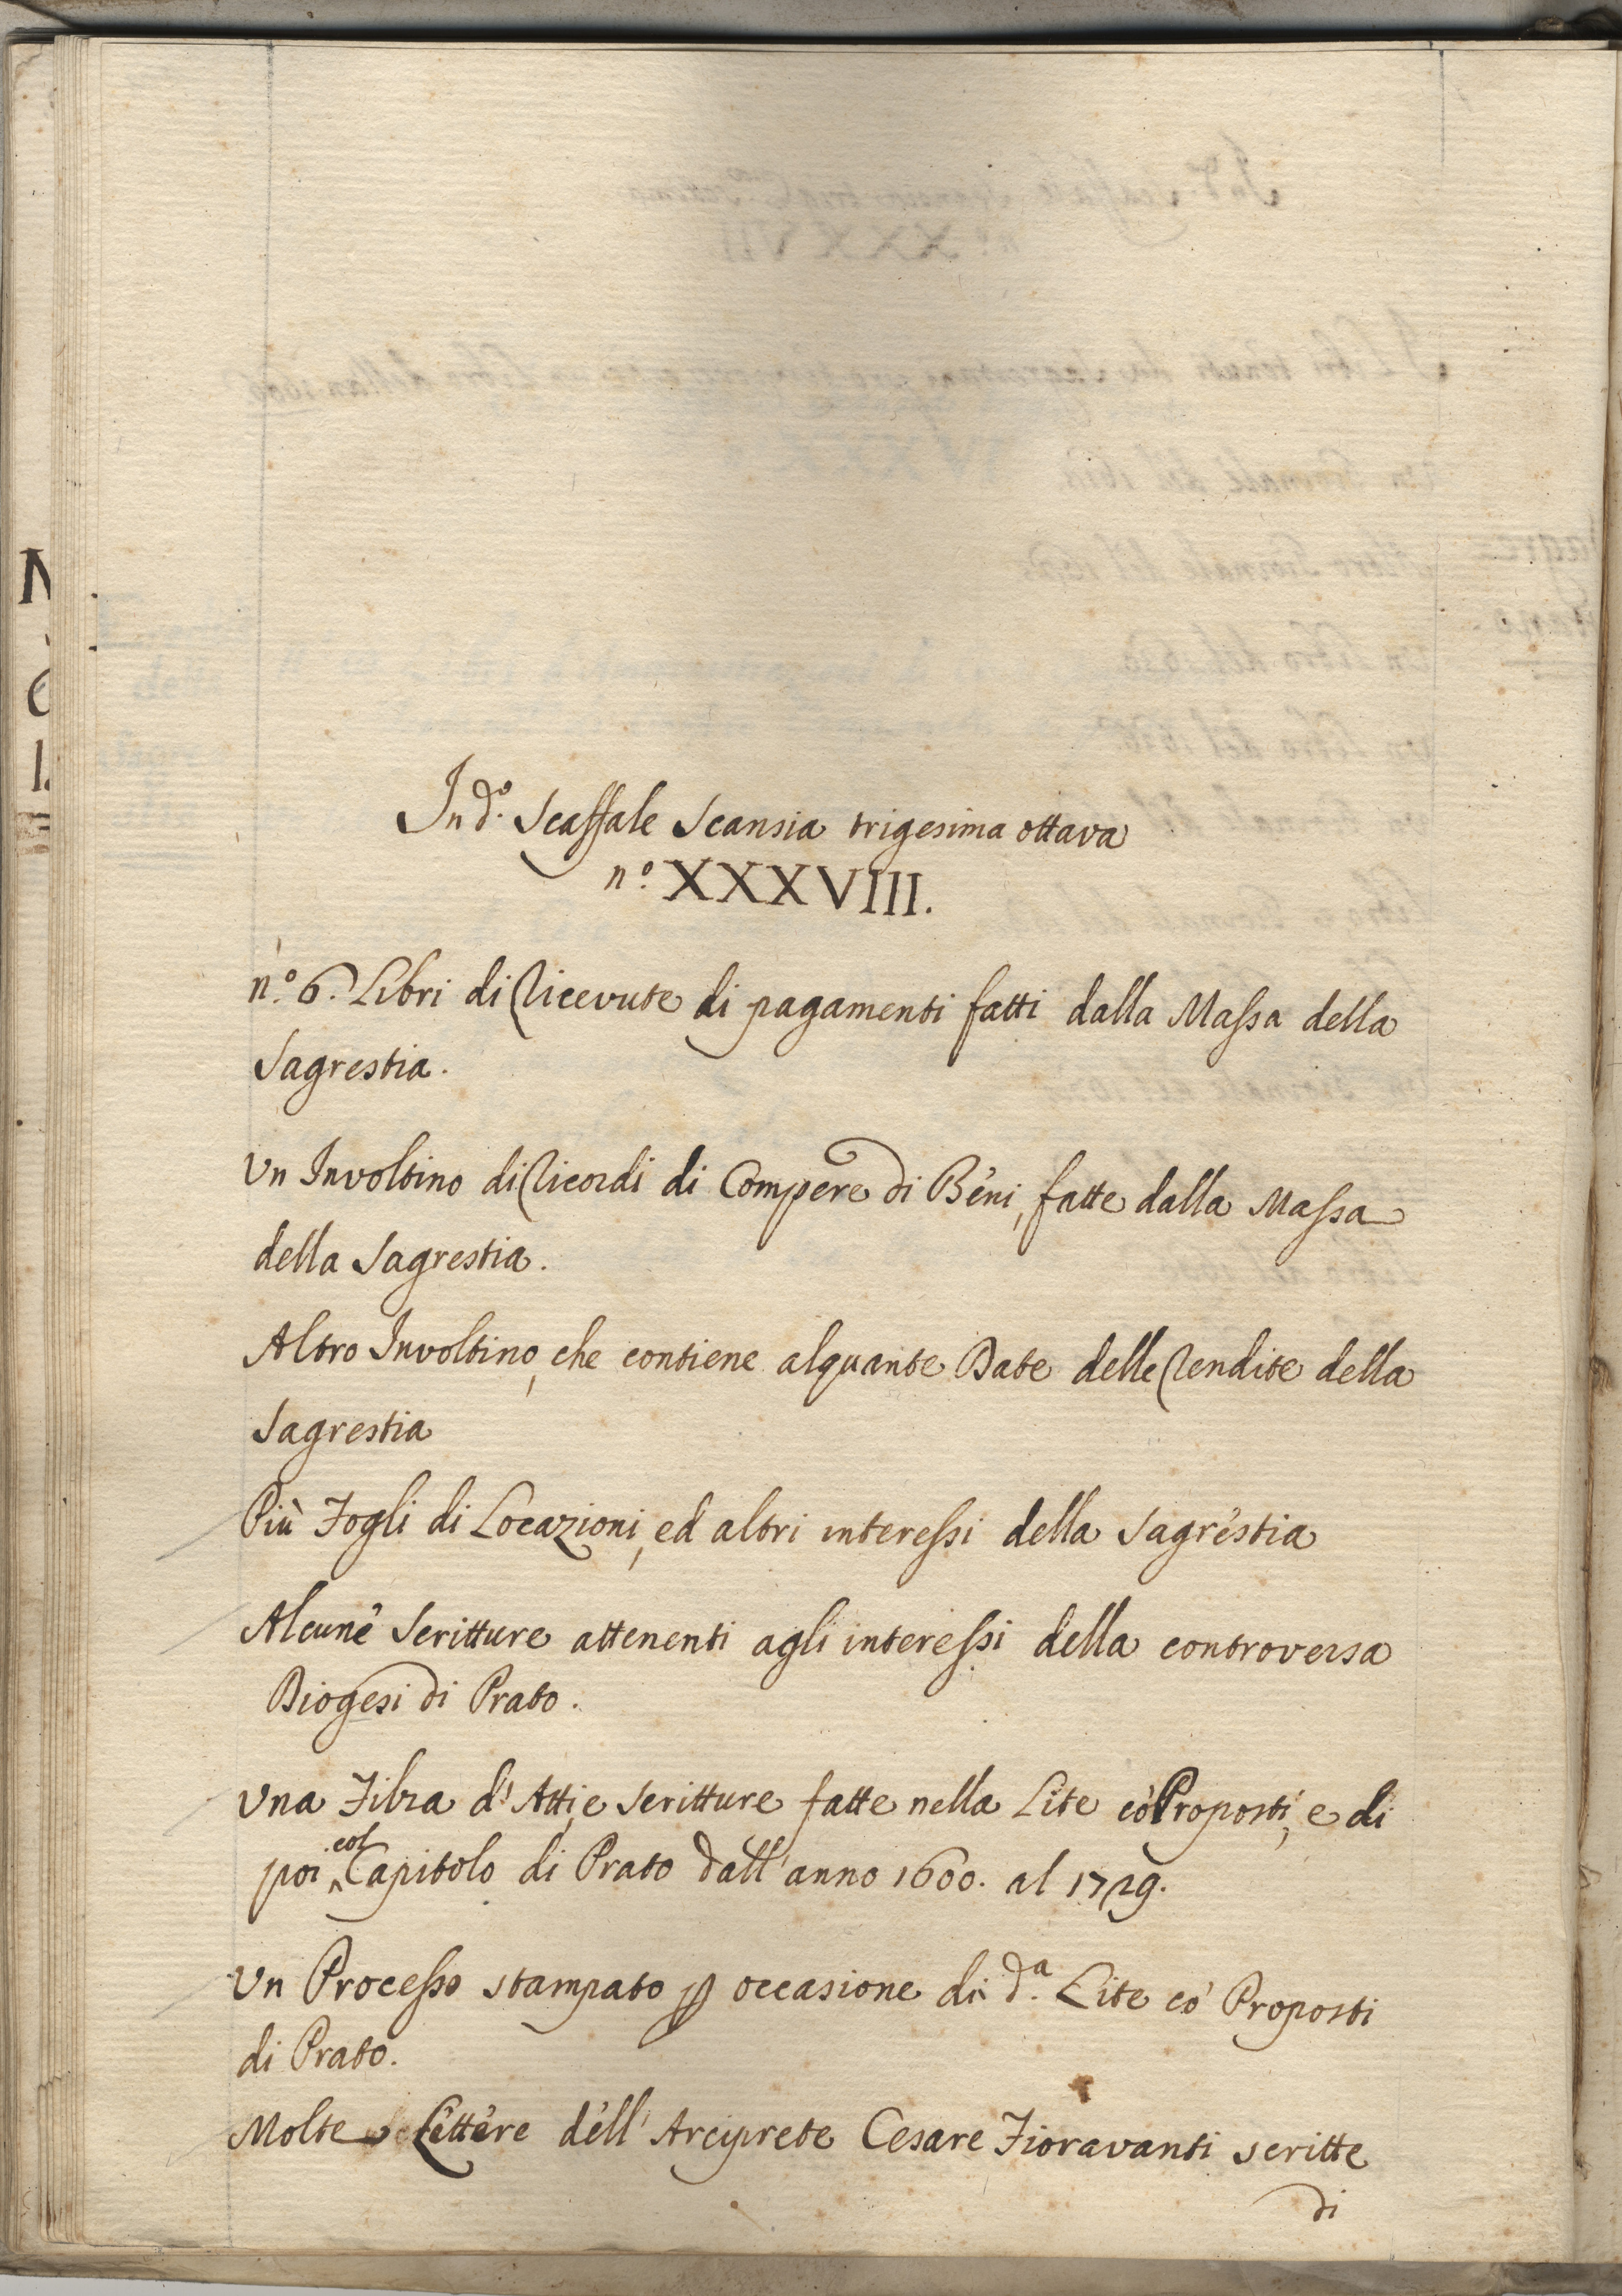 In d.º Scaffale Scansia trigesima ottava
n.º XXXVIII.
n.º 6. Libri di Ricevute di pagamenti fatti dalla Massa della
Sagrestia.
Un Involtino di Ricordi di Compere di Beni, fatte dalla Massa
della Sagrestia.
Altro Involtino, che contiene alquante Date delle Rendite della
Sagrestia
Più Fogli di Locazioni, ed altri interessi della Sagrestia
Alcune Scritture attenenti agli interessi della controversa
Diogesi di Prato.
Una Filza d'Atti, e Scritture fatte nella Lite co' Proposti, e di
poi col Capitolo di Prato dall'anno 1600. al 1729.
Un Processo stampato p occasione di d.ª Lite co' Proposti
di Prato.
Molte Lettere dell'Arciprete Cesare Fioravanti scritte
di